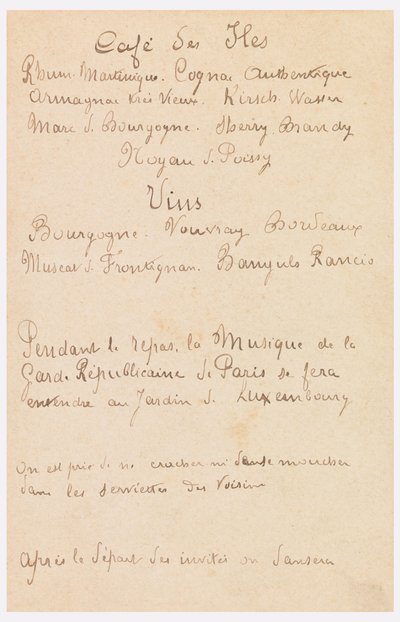 Café des Iles
Rhum. Martinique. Cognac Authentique
Armagnac très Vieux. Kirsch. Wasser
Marc de Bourgogne. Sherry Brandy
Noyau de Poissy
Vins
Bourgogne. Vouvray Bordeaux
Muscat de Frontignan. Banyuls Rancio
Pendant le repas. la Musique de la
Garde Républicaine de Paris se fera
entendre au Jardin du Luxembourg
On est prié de ne cracher ni se moucher
dans les serviettes des voisins
Après le départ des invités on dansera